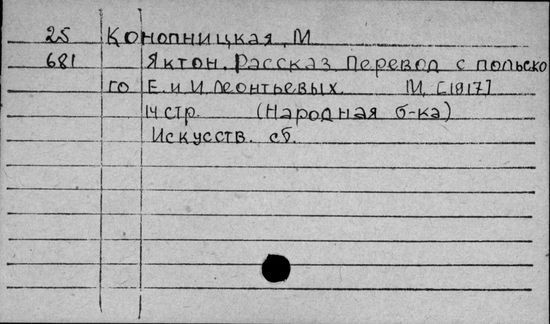 25 Конопницкая, М
681 Яктон. Рассказ Перевод с польско
го Е. и И Леонтьевых. М, [1917]
14 стр. (Народная б-ка)
Искусств. сб.